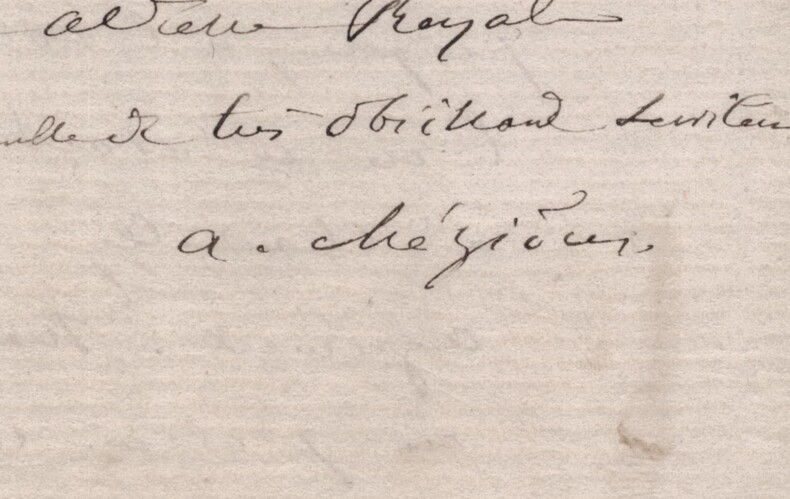 Altesse Royale
humble et très obéissant serviteur
A. Mézières.